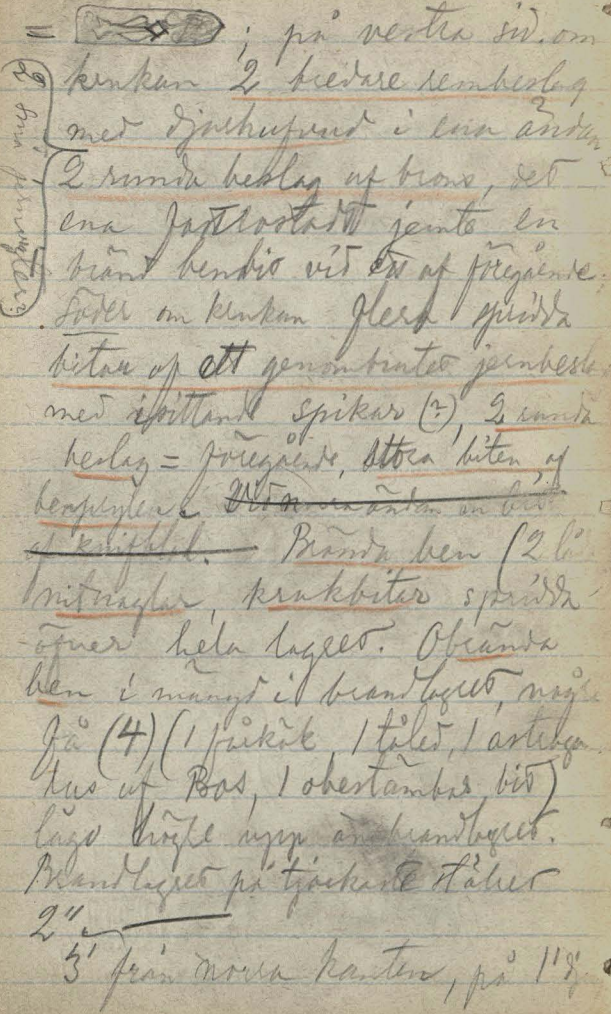 " ; på vestra sid. om
krukan 2 bredare rembeslag
med djurhufvud i ena ändan
2 runda beslag af brons, det
ena fastrostadt jemte en
bränd benbit vid ett af föregående.
Söder om krukan flera spridda
bitar af ett genombrutet jernbesl
med isittande spikar (?), 2 runda
beslag = föregående, stora biten af
benprylen. Vid norra ändan en bit
af knifblad. Brända ben (2 lå
nitnaglar, krukbitar spridda
öfver hela lagret. Obrända
ben i mängd i brandlagret, några
få (4) (1 fårkäk, 1 tåled, 1 astraga
lus af Bos, 1 obestämbar bit)
lågo högre upp än brandlagret.
Brandlagret på tjockaste stället
2".
3' från norra kanten, på 1' dj
2 små jernnglar